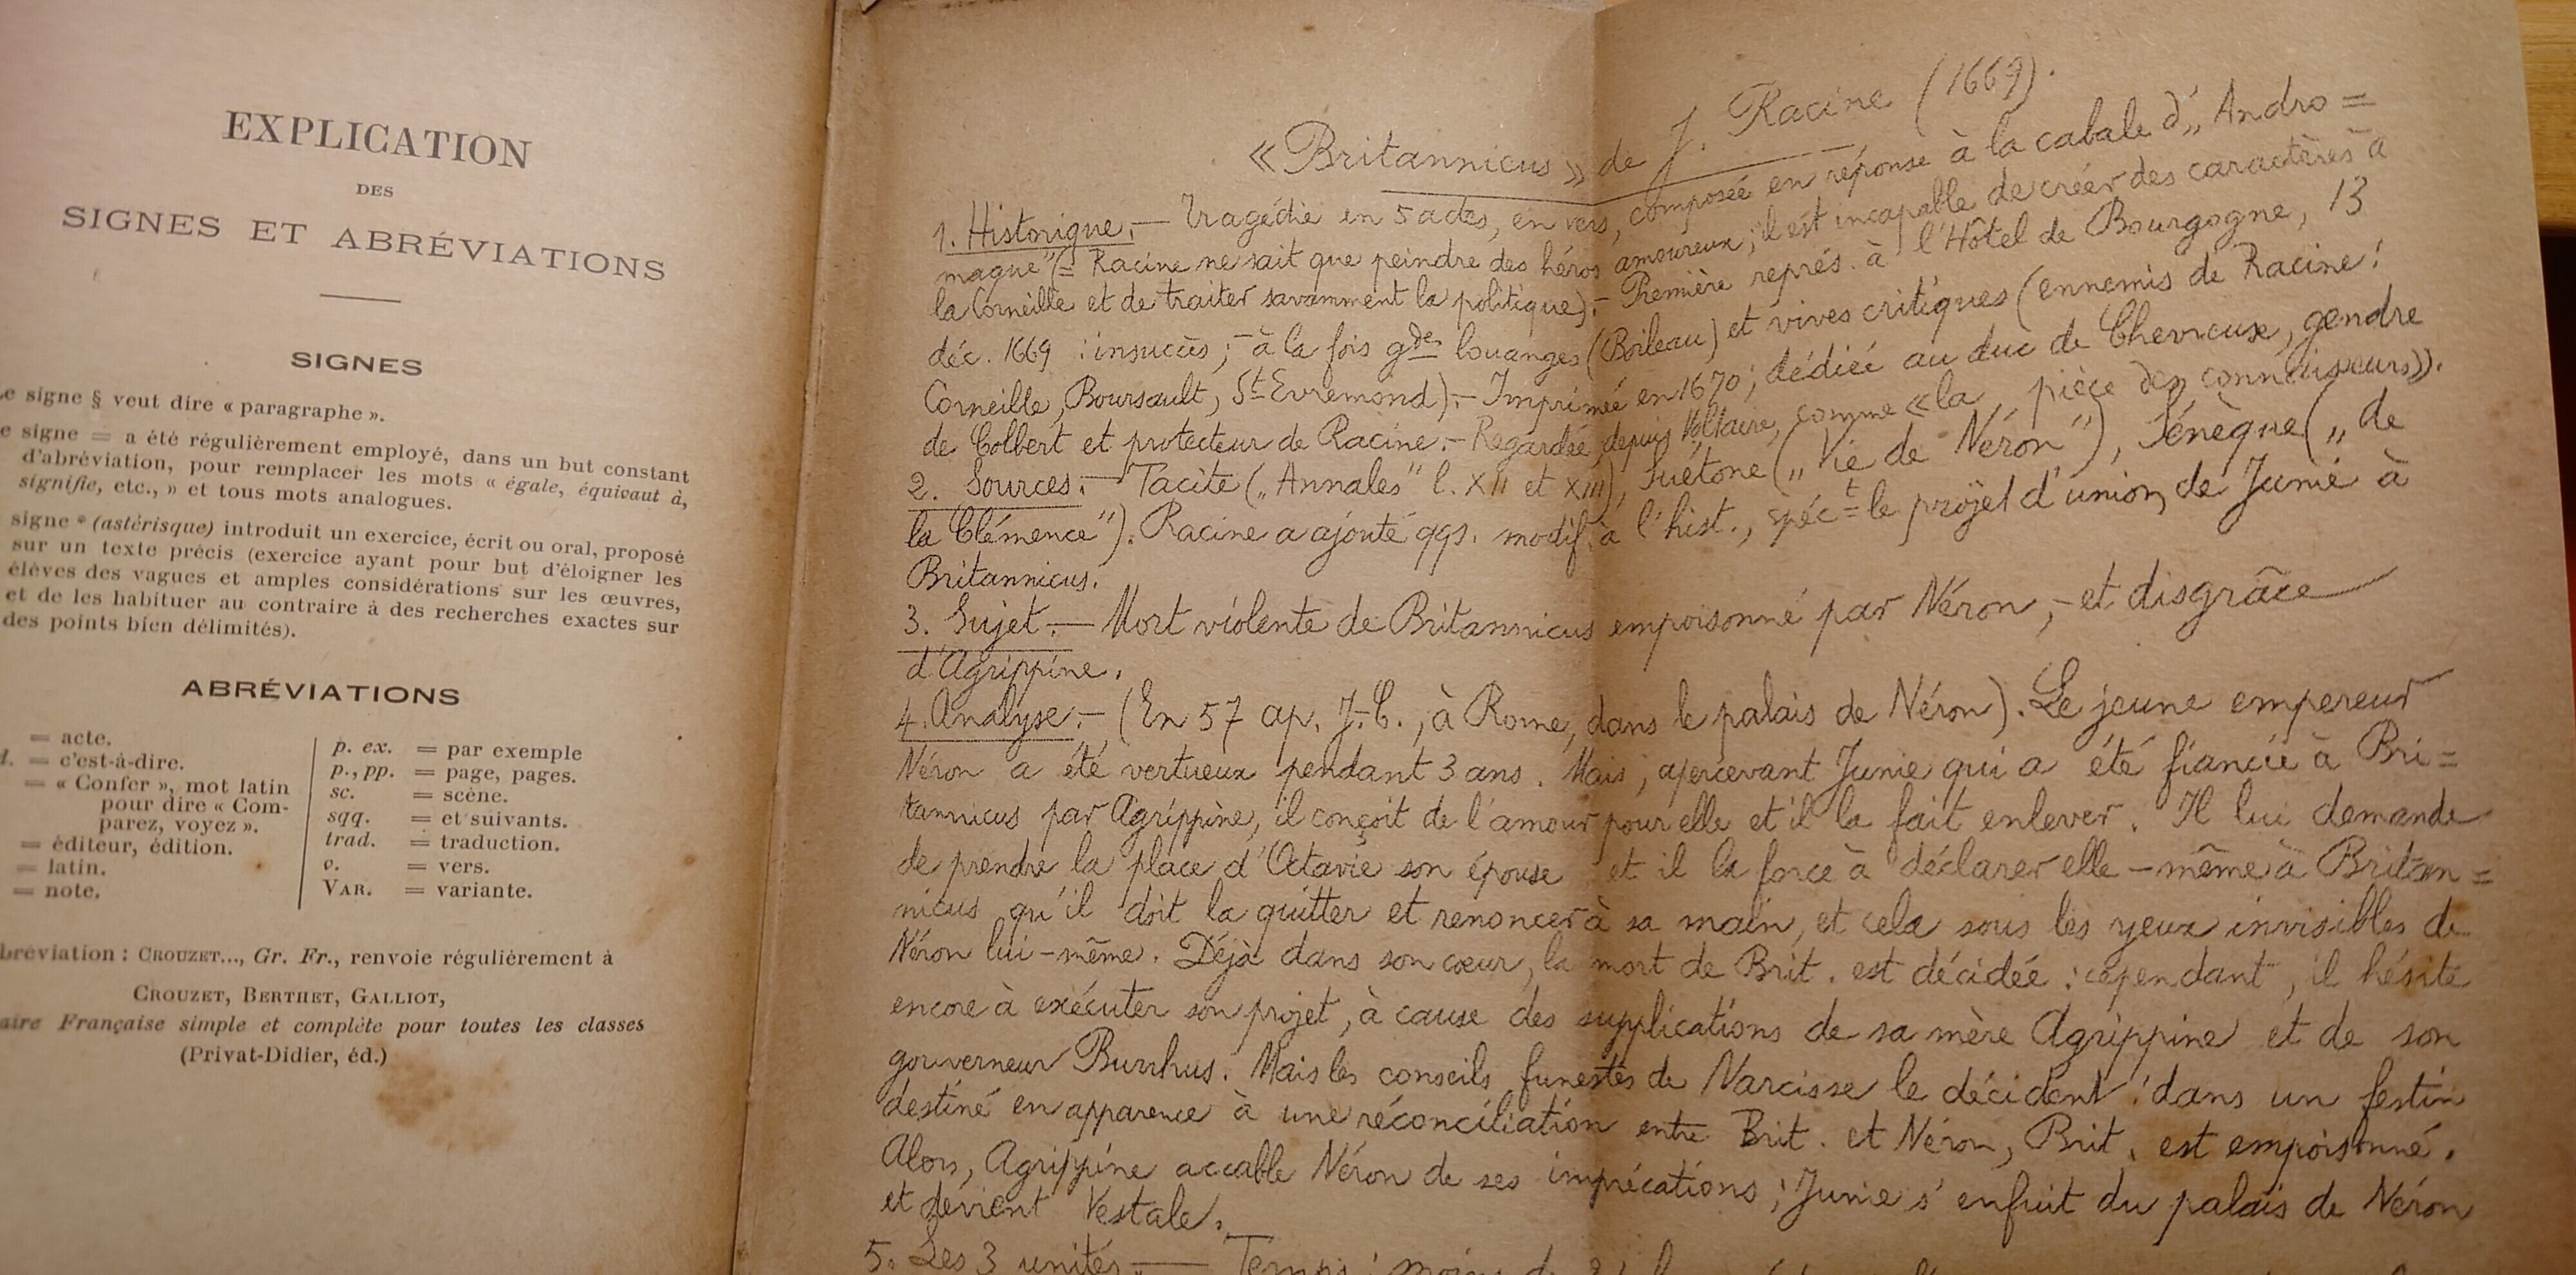 EXPLICATION
DES
SIGNES ET ABRÉVIATIONS
SIGNES
e signe § veut dire « paragraphe ».
e signe = a été régulièrement employé, dans un but constant
d'abréviation, pour remplacer les mots « égale, équivaut à,
signifie, etc., » et tous mots analogues.
signe * (astérisque) introduit un exercice, écrit ou oral, proposé
sur un texte précis (exercice ayant pour but d'éloigner les
élèves des vagues et amples considérations sur les œuvres,
et de les habituer au contraire à des recherches exactes sur
des points bien délimités).
ABRÉVIATIONS
= acte.
d. = c'est-à-dire.
= « Confer », mot latin
pour dire « Com-
parez, voyez ».
= éditeur, édition.
= latin.
= note.
p. ex. = par exemple
p., pp. = page, pages.
sc. = scène.
sqq. = et suivants.
trad. = traduction.
v. = vers.
VAR. = variante.
bréviation : CROUZET..., Gr. Fr., renvoie régulièrement à
CROUZET, BERTHET, GALLIOT,
aire Française simple et complète pour toutes les classes
(Privat-Didier, éd.)
« Britannicus » de J. Racine (1669).
1. Historique. — Tragédie en 5 actes, en vers, composée en réponse à la cabale d'„ Andro=
maque" (= Racine ne sait que peindre des héros amoureux ; il est incapable de créer des caractères à
la Corneille et de traiter savamment la politique). – Première représ. à l'Hôtel de Bourgogne, 13
déc. 1669 : insuccès ; – à la fois gdes louanges (Boileau) et vives critiques (ennemis de Racine :
Corneille, Boursault, St Evremond). – Imprimée en 1670 ; dédiée au duc de Chevreuse, gendre
de Colbert et protecteur de Racine. – Regardée, depuis Voltaire, comme « la pièce des connaisseurs ».
2. Sources. — Tacite („Annales" l. XII et XIII), Suétone („Vie de Néron"), Sénèque („de
la Clémence"). Racine a ajouté qqs. modif. à l'hist., spéct le projet d'union de Junie à
Britannicus.
3. Sujet. — Mort violente de Britannicus empoisonné par Néron, – et disgrâce
d'Agrippine.
4. Analyse. – (En 57 ap. J.-C., à Rome, dans le palais de Néron). Le jeune empereur
Néron a été vertueux pendant 3 ans. Mais, apercevant Junie qui a été fiancée à Bri=
tannicus par Agrippine, il conçoit de l'amour pour elle et il la fait enlever. Il lui demande
de prendre la place d'Octavie son épouse et il la force à déclarer elle-même à Britan=
nicus qu'il doit la quitter et renoncer à sa main, et cela sous les yeux invisibles de
Néron lui-même. Déjà dans son cœur, la mort de Brit. est décidée : cependant, il hésite
encore à exécuter son projet, à cause des supplications de sa mère Agrippine et de son
gouverneur Burrhus. Mais les conseils funestes de Narcisse le décident : dans un festin
destiné en apparence à une réconciliation entre Brit. et Néron, Brit. est empoisonné.
Alors, Agrippine accable Néron de ses imprécations ; Junie s'enfuit du palais de Néron
et devient Vestale.
5. Les 3 unités. — Temps : moins de